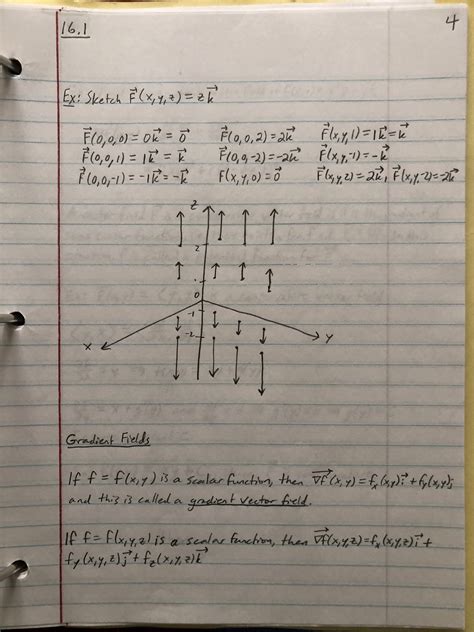 16.1
4
Ex: Sketch F⃗(x,y,z) = z k⃗
F⃗(0,0,0) = 0k⃗ = 0⃗   F⃗(0,0,2) = 2k⃗   F⃗(x,y,1) = 1k⃗ = k⃗
F⃗(0,0,1) = 1k⃗ = k⃗   F⃗(0,0,-2) = -2k⃗   F⃗(x,y,-1) = -k⃗
F⃗(0,0,-1) = -1k⃗ = -k⃗   F⃗(x,y,0) = 0⃗   F⃗(x,y,2) = 2k⃗, F⃗(x,y,-2) = -2k⃗
z
2
0
-1
-2
x
y
Gradient Fields
If f = f(x,y) is a scalar function, then ∇f⃗(x,y) = fx(x,y)i⃗ + fy(x,y)j⃗
and this is called a gradient vector field.
If f = f(x,y,z) is a scalar function, then ∇f⃗(x,y,z) = fx(x,y,z)i⃗ +
fy(x,y,z)j⃗ + fz(x,y,z)k⃗